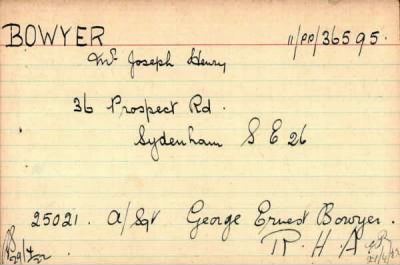 BOWYER 11/PP/36595.
Mr Joseph Henry
36 Prospect Rd.
Sydenham S E 26
25021. A/Sgt George Ernest Bowyer.
R.H.A
29/4/22